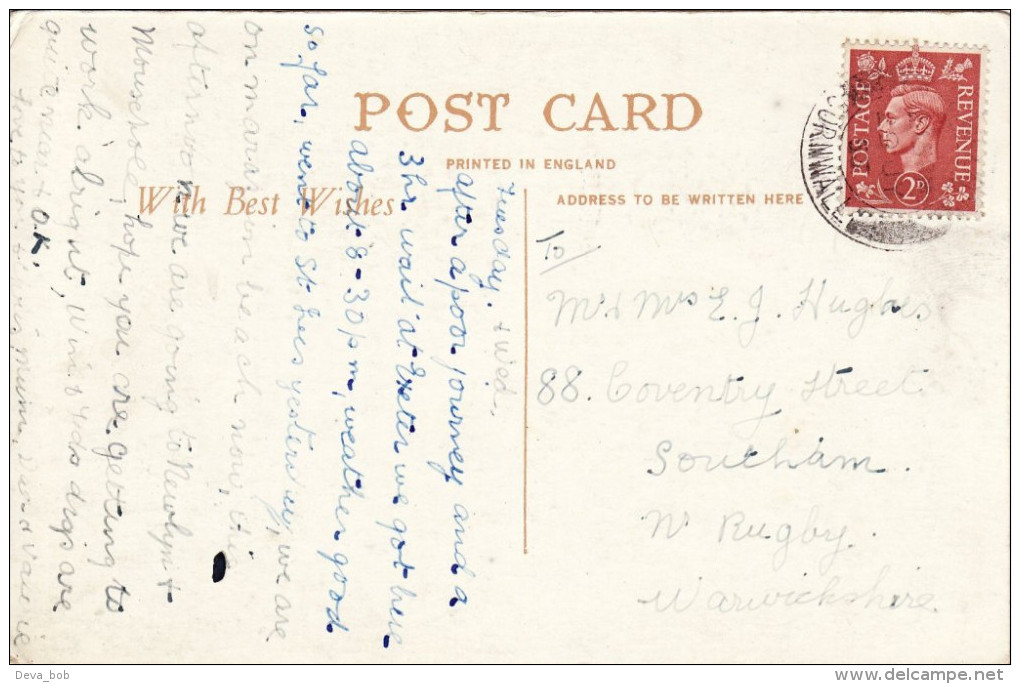 POST CARD
PRINTED IN ENGLAND
With Best Wishes
ADDRESS TO BE WRITTEN HERE
POSTAGE
REVENUE
2D
CORNWALL
Tuesday. & Wed.
after a poor journey and a
3 hr. wait at Exeter we got here
about 8-30 pm, weather good
so far, went to St. Ives yesterday, we are
on marazion beach now, this
afternoon we are going to Newlyn &
Mousehole, hope you are getting to
work alright, Wins & Yds digs are
quite near & O.K.
Love to you Win, mum, David Valerie
To/
Mr & Mrs E. J. Hughes
88. Coventry Street
Southam.
Nr Rugby.
Warwickshire.
Deva_bob
delcampe.net